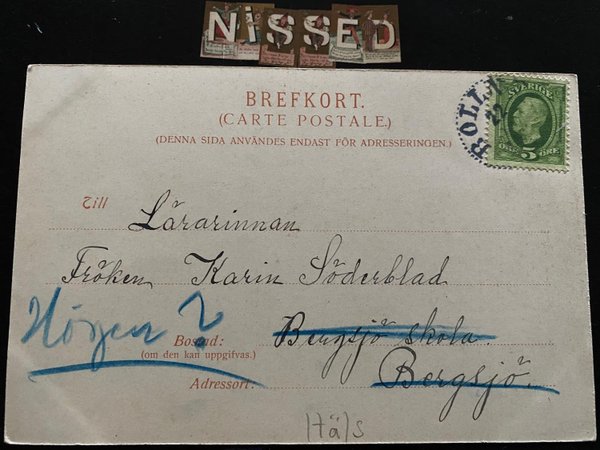 NiSSED
BREFKORT.
(CARTE POSTALE.)
(DENNA SIDA ANVÄNDES ENDAST FÖR ADRESSERINGEN.)
BOLLN
22
SVERIGE
5
ÖRE
Till
Lärarinnan
Fröken Karin Söderblad
Högen?
Bostad: Bergsjö skola.
(om den kan uppgifvas.)
Bergsjö.
Adressort:
Häls